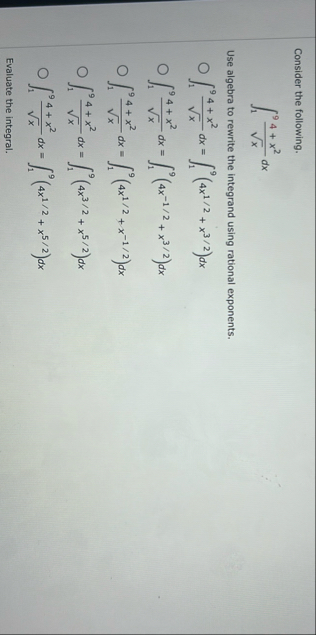 Consider the following.
∫₁⁹ (4 + x²)/√x dx
Use algebra to rewrite the integrand using rational exponents.
○ ∫₁⁹ (4 + x²)/√x dx = ∫₁⁹ (4x^1/2 + x^3/2)dx
○ ∫₁⁹ (4 + x²)/√x dx = ∫₁⁹ (4x^−1/2 + x^3/2)dx
○ ∫₁⁹ (4 + x²)/√x dx = ∫₁⁹ (4x^1/2 + x^−1/2)dx
○ ∫₁⁹ (4 + x²)/√x dx = ∫₁⁹ (4x^3/2 + x^5/2)dx
○ ∫₁⁹ (4 + x²)/√x dx = ∫₁⁹ (4x^1/2 + x^5/2)dx
Evaluate the integral.